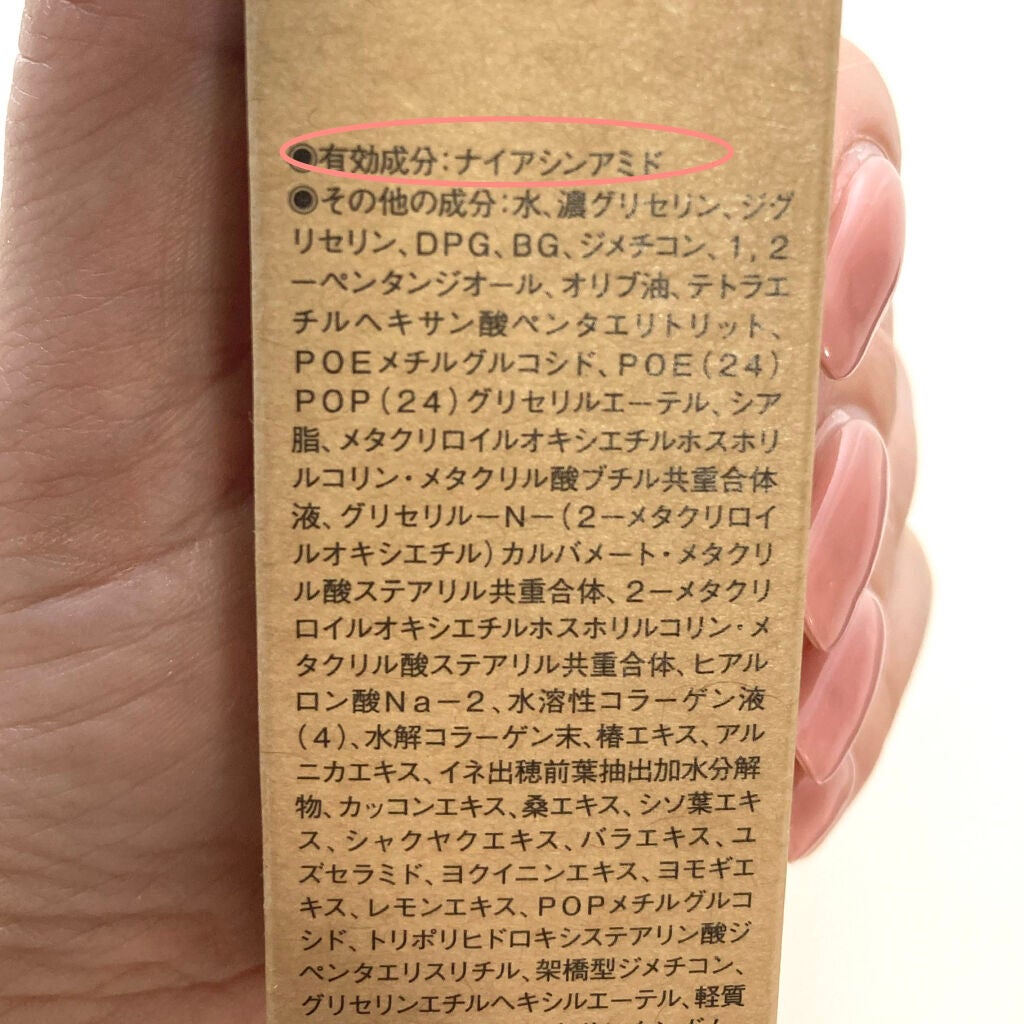 ◉有効成分:ナイアシンアミド
◉その他の成分:水、濃グリセリン、ジグ
リセリン、DPG、BG、ジメチコン、1,2
ーペンタンジオール、オリブ油、テトラエ
チルヘキサン酸ペンタエリトリット、
POEメチルグルコシド、POE(24)
POP(24)グリセリルエーテル、シア
脂、メタクリロイルオキシエチルホスホリ
ルコリン・メタクリル酸ブチル共重合体
液、グリセリルーNー(2ーメタクリロイ
ルオキシエチル)カルバメート・メタクリ
ル酸ステアリル共重合体、2ーメタクリ
ロイルオキシエチルホスホリルコリン・メ
タクリル酸ステアリル共重合体、ヒアル
ロン酸Naー2、水溶性コラーゲン液
(4)、水解コラーゲン末、椿エキス、アル
ニカエキス、イネ出穂前葉抽出加水分解
物、カッコンエキス、桑エキス、シソ葉エキ
ス、シャクヤクエキス、バラエキス、ユ
ズセラミド、ヨクイニンエキス、ヨモギエ
キス、レモンエキス、POPメチルグルコ
シド、トリポリヒドロキシステアリン酸ジ
ペンタエリスリチル、架橋型ジメチコン、
グリセリンエチルヘキシルエーテル、軽質